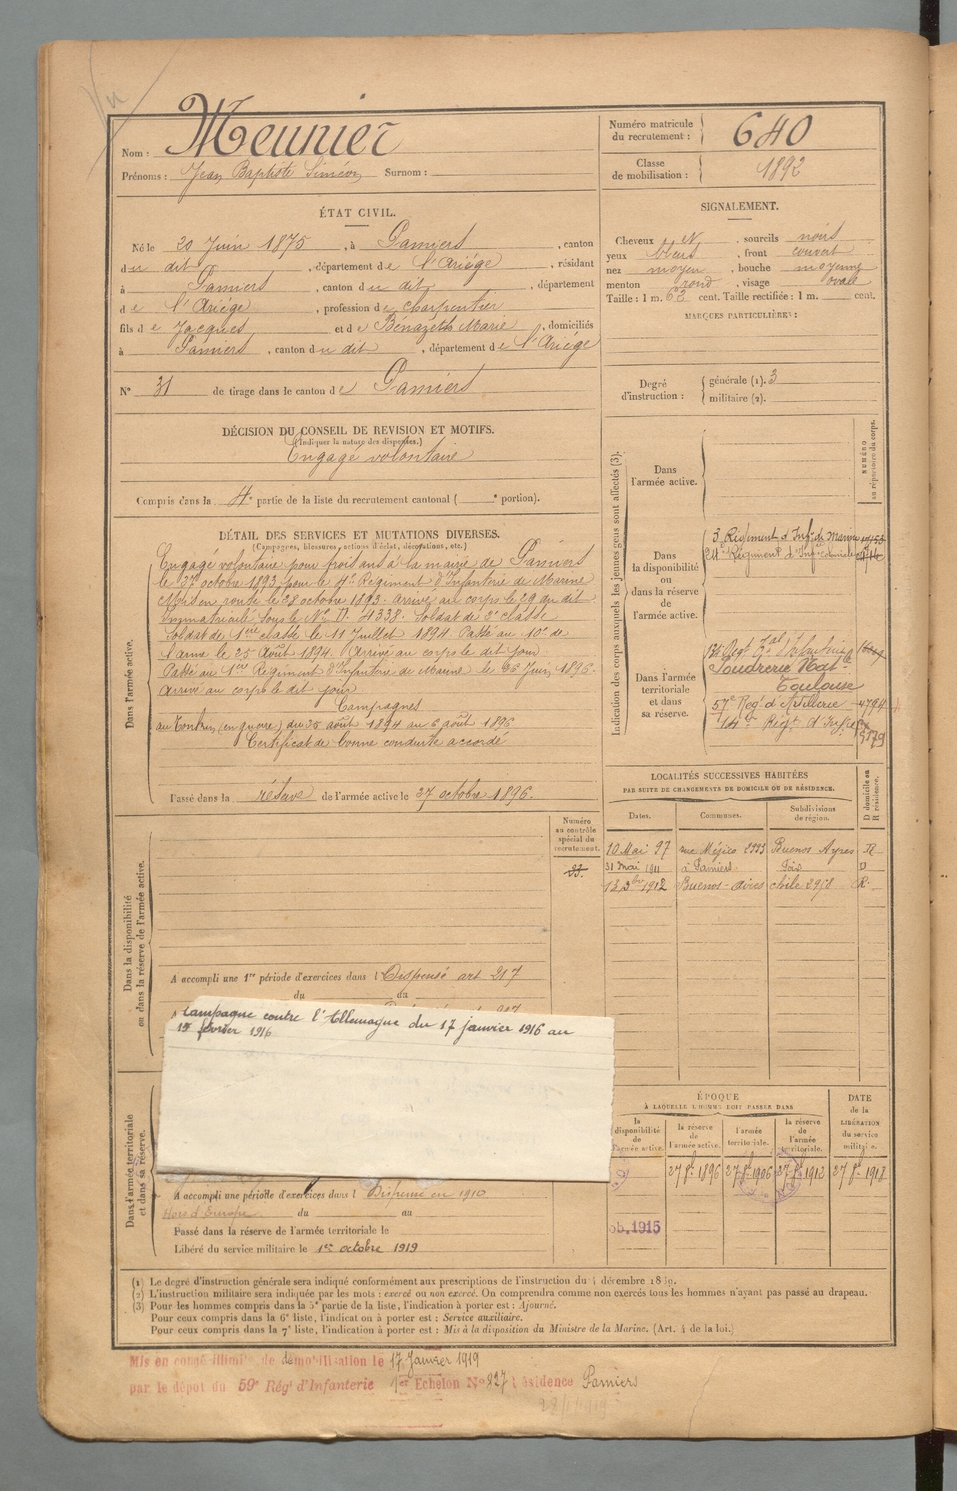 Vu
Nom : Meunier
Prénoms : Jean Baptiste Siméon Surnom :
Numéro matricule du recrutement : 640
Classe de mobilisation : 1892
ÉTAT CIVIL.
Né le 20 Juin 1875, à Pamiers, canton
du dit, département de l'Ariège, résidant
à Pamiers, canton du dit, département
de l'Ariège, profession de charpentier
fils de Jacques et de Bénazeth Marie, domiciliés
à Pamiers, canton du dit, département de l'Ariége
N° 31 de tirage dans le canton de Pamiers
SIGNALEMENT.
Cheveux et, sourcils noirs
yeux bleus, front couvert
nez moyen, bouche moyenne
menton rond, visage ovale
Taille : 1 m. 62 cent. Taille rectifiée : 1 m. cent.
MARQUES PARTICULIÈRES :
Degré d'instruction : générale (1). 3
militaire (2).
DÉCISION DU CONSEIL DE REVISION ET MOTIFS.
(Indiquer la nature des dispenses.)
Engagé volontaire
Compris dans la 4e partie de la liste du recrutement cantonal ( e portion).
DÉTAIL DES SERVICES ET MUTATIONS DIVERSES.
(Campagnes, blessures, actions d'éclat, décorations, etc.)
Dans l'armée active.
Engagé volontaire pour trois ans à la mairie de Pamiers
le 27 octobre 1893, pour le 4e Régiment d'Infanterie de Marine
Mis en route le 28 octobre 1893. Arrivé au corps le 29 du dit
Immatriculé sous le No D. 4338. Soldat de 2e classe
Soldat de 1ère classe le 11 Juillet 1894. Passé au 10e de
l'arme le 25 Août 1894. Arrivé au corps le dit jour
Passé au 1er Régiment d'Infanterie de Marine le 26 Juin 1896.
Arrivé au corps le dit jour
Campagnes
au Tonkin (en guerre) du 25 août 1894 au 6 août 1896
Certificat de bonne conduite accordé
Passé dans la réserve de l'armée active le 27 octobre 1896.
Indication des corps auxquels les jeunes gens sont affectés (3).
NUMÉRO au répertoire du corps.
Dans l'armée active.
Dans la disponibilité ou dans la réserve de l'armée active.
3e Régiment d'Infie de Marine
24e Régiment d'Infie coloniale
Dans l'armée territoriale et dans sa réserve.
136 Régt Tal d'Infanterie
Poudrerie Natle
Toulouse
57e Régt d'Artillerie 4794
14e Régt d'Infie 5179
LOCALITÉS SUCCESSIVES HABITÉES
PAR SUITE DE CHANGEMENTS DE DOMICILE OU DE RÉSIDENCE.
D domicile ou R résidence.
Dates. Communes. Subdivisions de région.
10 Mai 97 rue Méjico 2993 Buenos Ayres R
31 mai 1911 à Pamiers Foix D
12 Xbre 1912 Buenos-Aires chile 2958 R.
Numéro au contrôle spécial du recrutement.
Dans la disponibilité ou dans la réserve de l'armée active.
A accompli une 1re période d'exercices dans l Dispensé art 217
du au
Campagne contre l'Allemagne du 17 janvier 1916 au
17 février 1916
Dans l'armée territoriale et dans sa réserve.
A accompli une période d'exercices dans l Dispensé en 1910
Hors d'Europe du au
Passé dans la réserve de l'armée territoriale le
Libéré du service militaire le 1er octobre 1919
ÉPOQUE
À LAQUELLE L'HOMME DOIT PASSER DANS
DATE de la LIBÉRATION du service militaire.
la disponibilité de l'armée active. la réserve de l'armée active. l'armée territoriale. la réserve de l'armée territoriale.
27 8bre 1896 27 8bre 1906 27 8bre 1912 27 8bre 1918
1915
(1) Le degré d'instruction générale sera indiqué conformément aux prescriptions de l'instruction du 4 décembre 1889.
(2) L'instruction militaire sera indiquée par les mots : exercé ou non exercé. On comprendra comme non exercés tous les hommes n'ayant pas passé au drapeau.
(3) Pour les hommes compris dans la 5e partie de la liste, l'indication à porter est : Ajourné.
Pour ceux compris dans la 6e liste, l'indication à porter est : Service auxiliaire.
Pour ceux compris dans la 7e liste, l'indication à porter est : Mis à la disposition du Ministre de la Marine. (Art. 4 de la loi.)
Mis en congé illimité de démobilisation le 17 Janvier 1919
par le dépôt du 59e Régt d'Infanterie 1er Echelon No 227 Résidence Pamiers